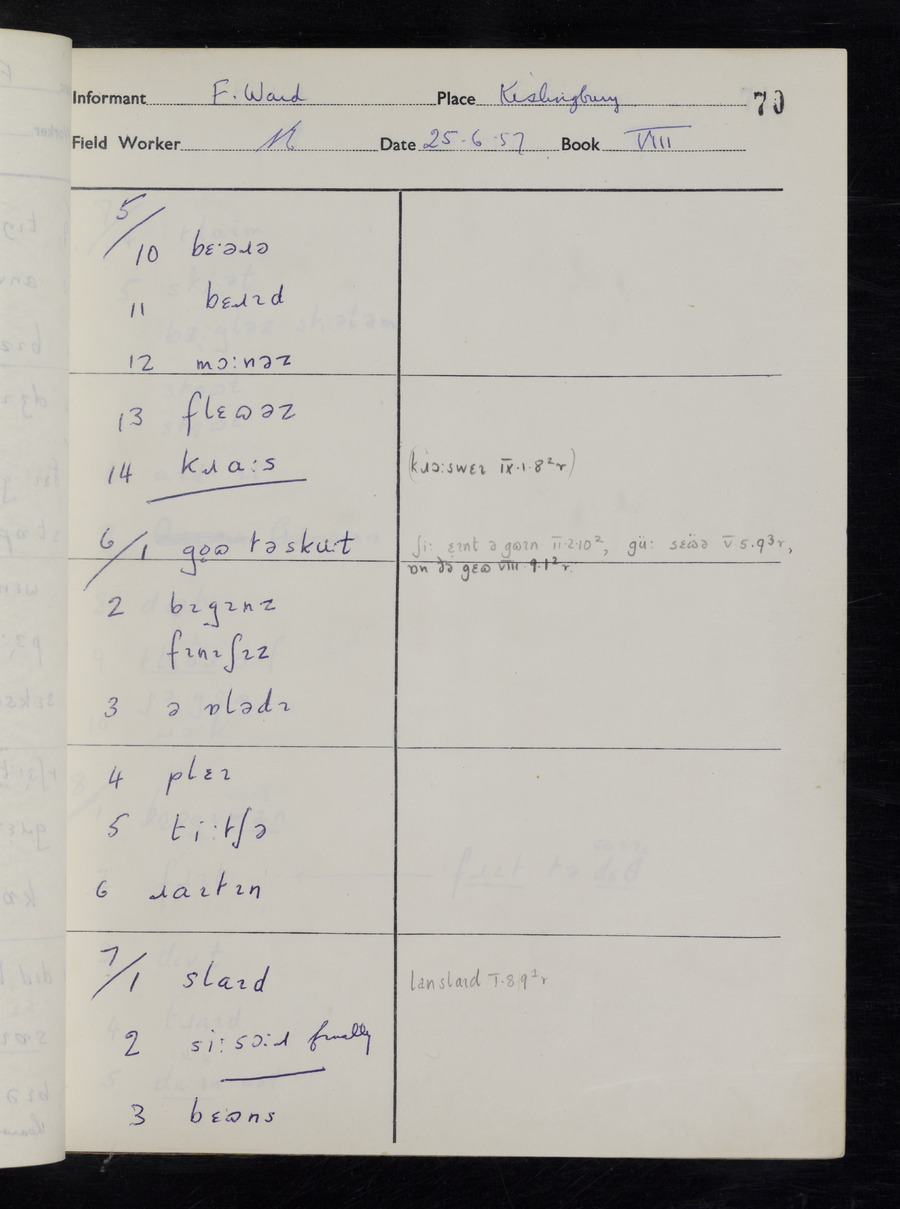 Informant F. Ward Place Kislingbury 70
Field Worker Date 25-6-57 Book VIII
5/10 bɛ·əɹə
11 bɛɹɪd
12 mɔːnəz
13 flɛɷəz
14 kɹaːs (kɹɔːswɛɪ IX·1·8²r)
6/1 gọɷ tə skuːt ʃiː ɛɪnt ə gɷɪn II·2·10², güː sɛɷ̈ə V·5·9³r,
ɒn ðə gɛɷ VIII·9·1²r.
2 bɪgɪnz
fɪnɪʃɪz
3 ə ɒlədɪ
4 plɛɪ
5 tiːtʃə
6 ɹaɪtɪn
7/1 slaɪd lanslaɪd I·8·9²r
2 siːsɔːɹ finally
3 bɛɷns